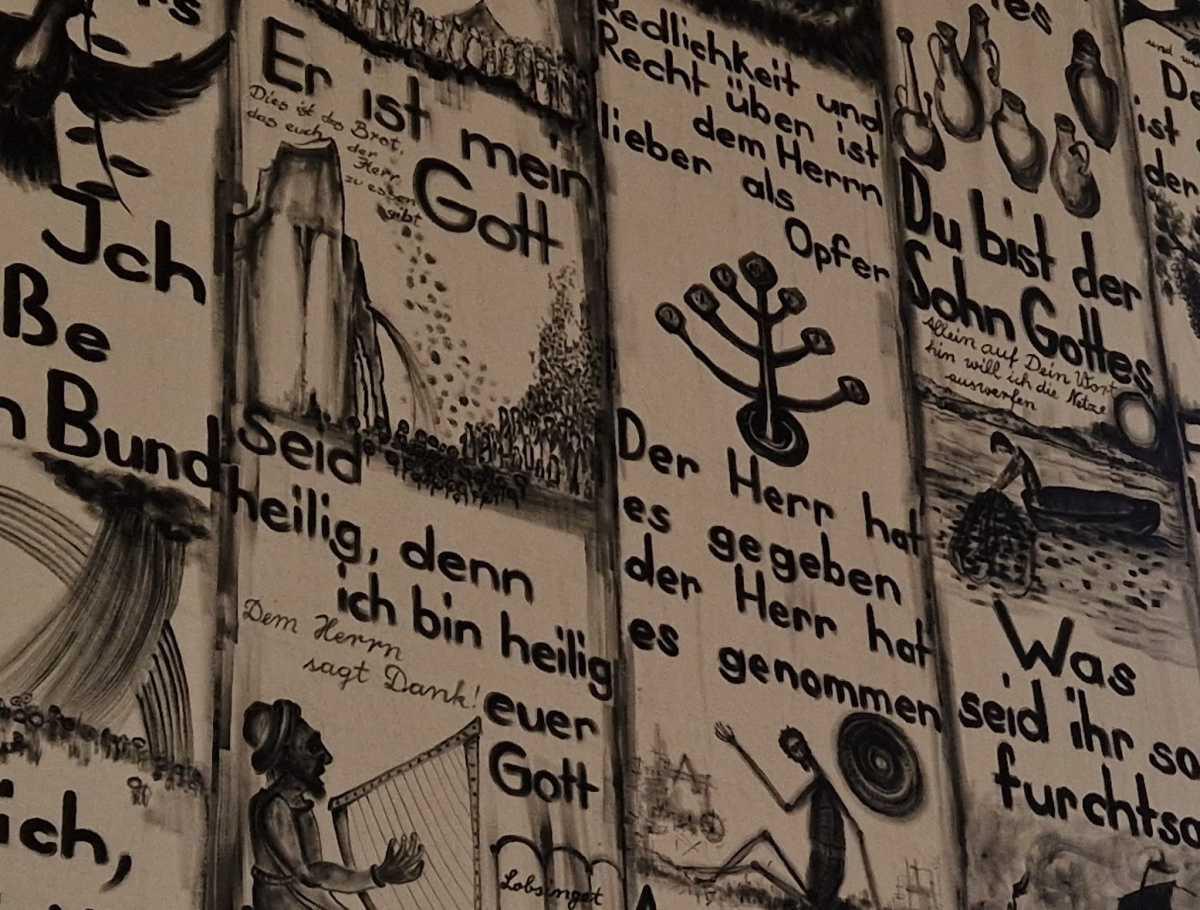 Jch
ße
Bund
ich,
Er ist mein
Gott
Dies ist das Brot,
das euch
der
Herr
zu essen
gibt
Seid
heilig, denn
ich bin heilig
euer
Gott
Dem Herrn
sagt Dank!
Lobsinget
Redlichkeit und
Recht üben ist
dem Herrn
lieber als
Opfer
Der Herr hat
es gegeben
der Herr hat
es genommen
Du bist der
Sohn Gottes
Allein auf Dein Wort
hin will ich die Netze
auswerfen
Was
seid ihr so
furchtsa
und
De
ist
der